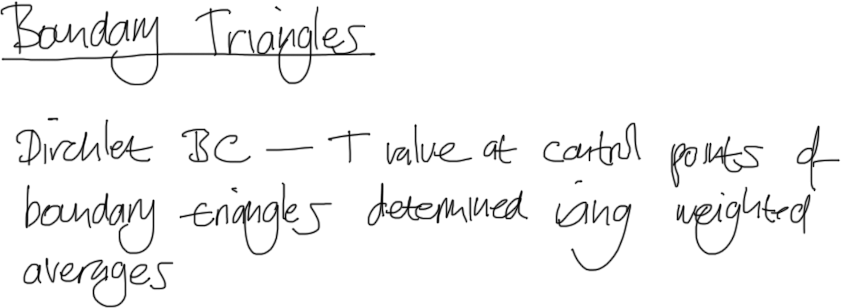 Boundary Triangles
Dirchlet BC — T value at control points of
boundary triangles determined using weighted
averages